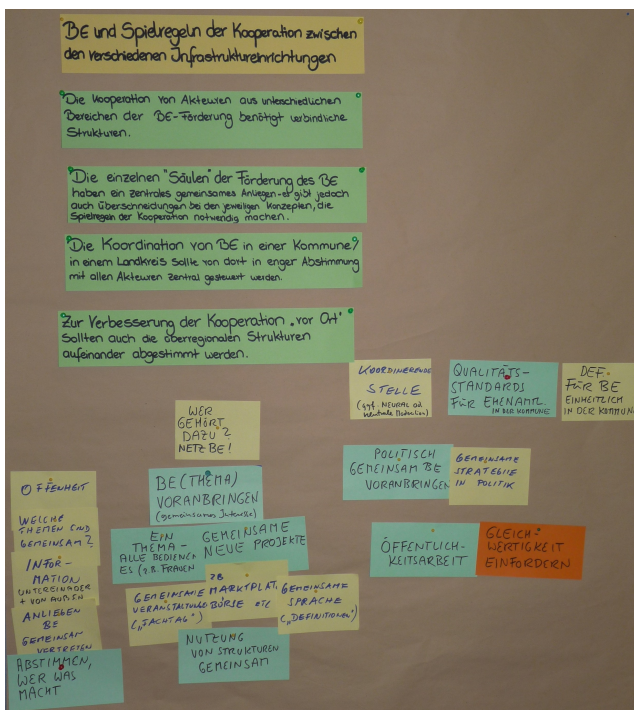 BE und Spielregeln der Kooperation zwischen
den verschiedenen Infrastruktureinrichtungen
Die Kooperation von Akteuren aus unterschiedlichen
Bereichen der BE-Förderung benötigt verbindliche
Strukturen.
Die einzelnen "Säulen" der Förderung des BE
haben ein zentrales gemeinsames Anliegen - er gibt jedoch
auch Überschneidungen bei den jeweiligen Konzepten, die
Spielregeln der Kooperation notwendig machen.
Die Koordination von BE in einer Kommune/
in einem Landkreis sollte von dort in enger Abstimmung
mit allen Akteuren zentral gesteuert werden.
Zur Verbesserung der Kooperation "vor Ort"
sollten auch die überregionalen Strukturen
aufeinander abgestimmt werden.
KOORDINIERENDE
STELLE
(ggf. NEURAL od.
QUALITÄTS-
STANDARDS
FÜR EHENAMTL.
IN DER KOMMUNE
DEF.
FÜR BE
EINHEITLICH
IN DER KOMMUN
WER
GEHÖRT
DAZU?
NETZ BE!
POLITISCH
GEMEINSAM BE
VORANBRINGEN
GEMEINSAME
STRATEGIE
IN POLITIK
OFFENHEIT
WELCHE
THEMEN SIND
GEMEINSAM?
INFOR-
MATION
UNTEREINANDER
+ VON AUßEN
ANLIEGEN
BE
GEMEINSAM
VERTRETEN
ABSTIMMEN,
WER WAS
MACHT
BE (THEMA)
VORANBRINGEN
(gemeinsames Interesse)
EIN
THEMA -
ALLE BEDIENEN
ES (z.B. FRAUEN
GEMEINSAME
NEUE PROJEKTE
GEMEINSAME
VERANSTALTUNG
("FACHTAG")
ZB
MARKTPLAT
BÖRSE etc
GEMEINSAME
SPRACHE
("DEFINITIONEN")
NUTZUNG
VON STRUKTUREN
GEMEINSAM
ÖFFENTLICH-
KEITSARBEIT
GLEICH-
WERTIGKEIT
EINFORDERN